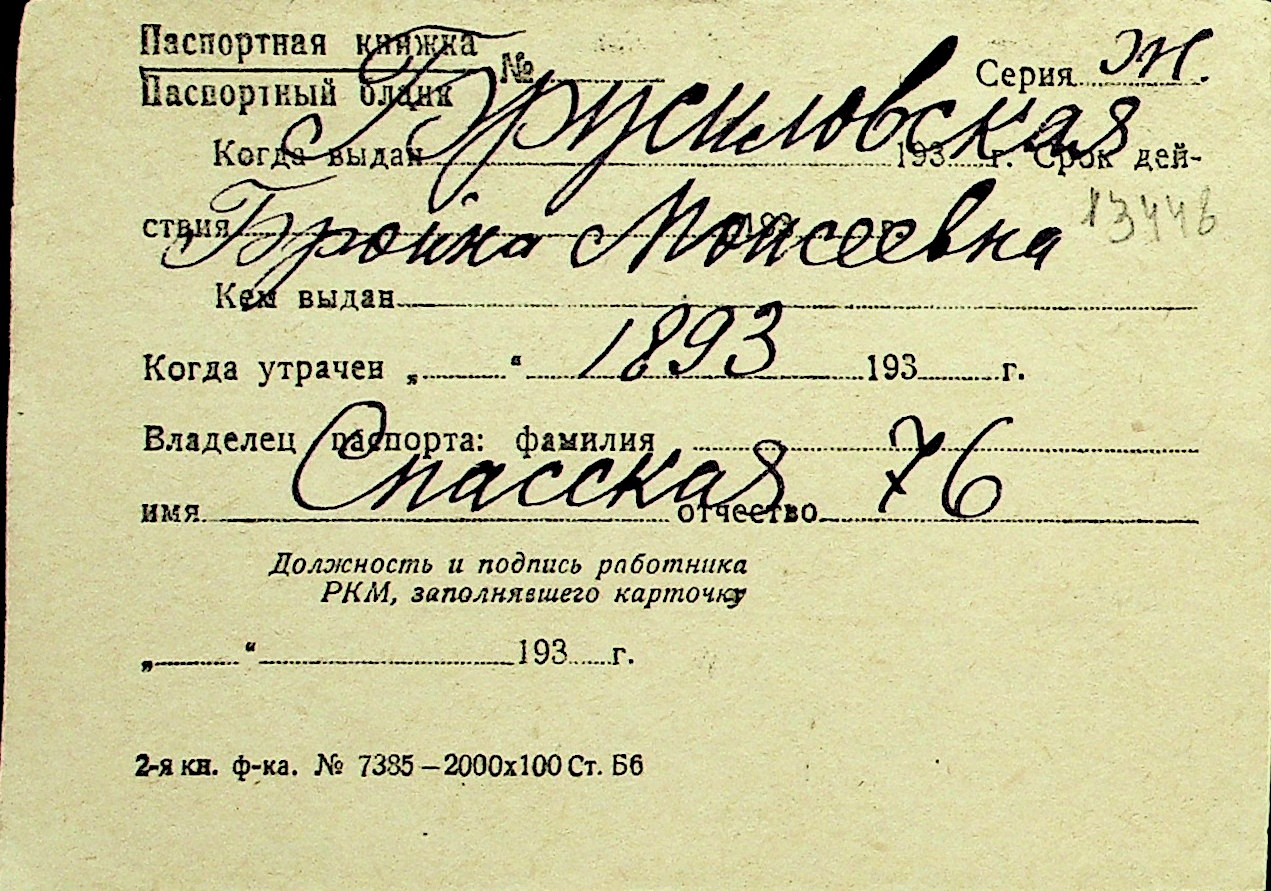 Паспортная книжка
Паспортный бланк № Серия Ж.
Брусиловская
Когда выдан 193 г. Срок дей-
ствия 193 г.
Бройна Моисеевна 13446
Кем выдан
1893
Когда утрачен „ “ 193 г.
Владелец паспорта: фамилия
Спасская 76
имя отчество
Должность и подпись работника
РКМ, заполнявшего карточку
„ “ 193 г.
2-я кн. ф-ка. № 7385—2000x100 Ст. Б6